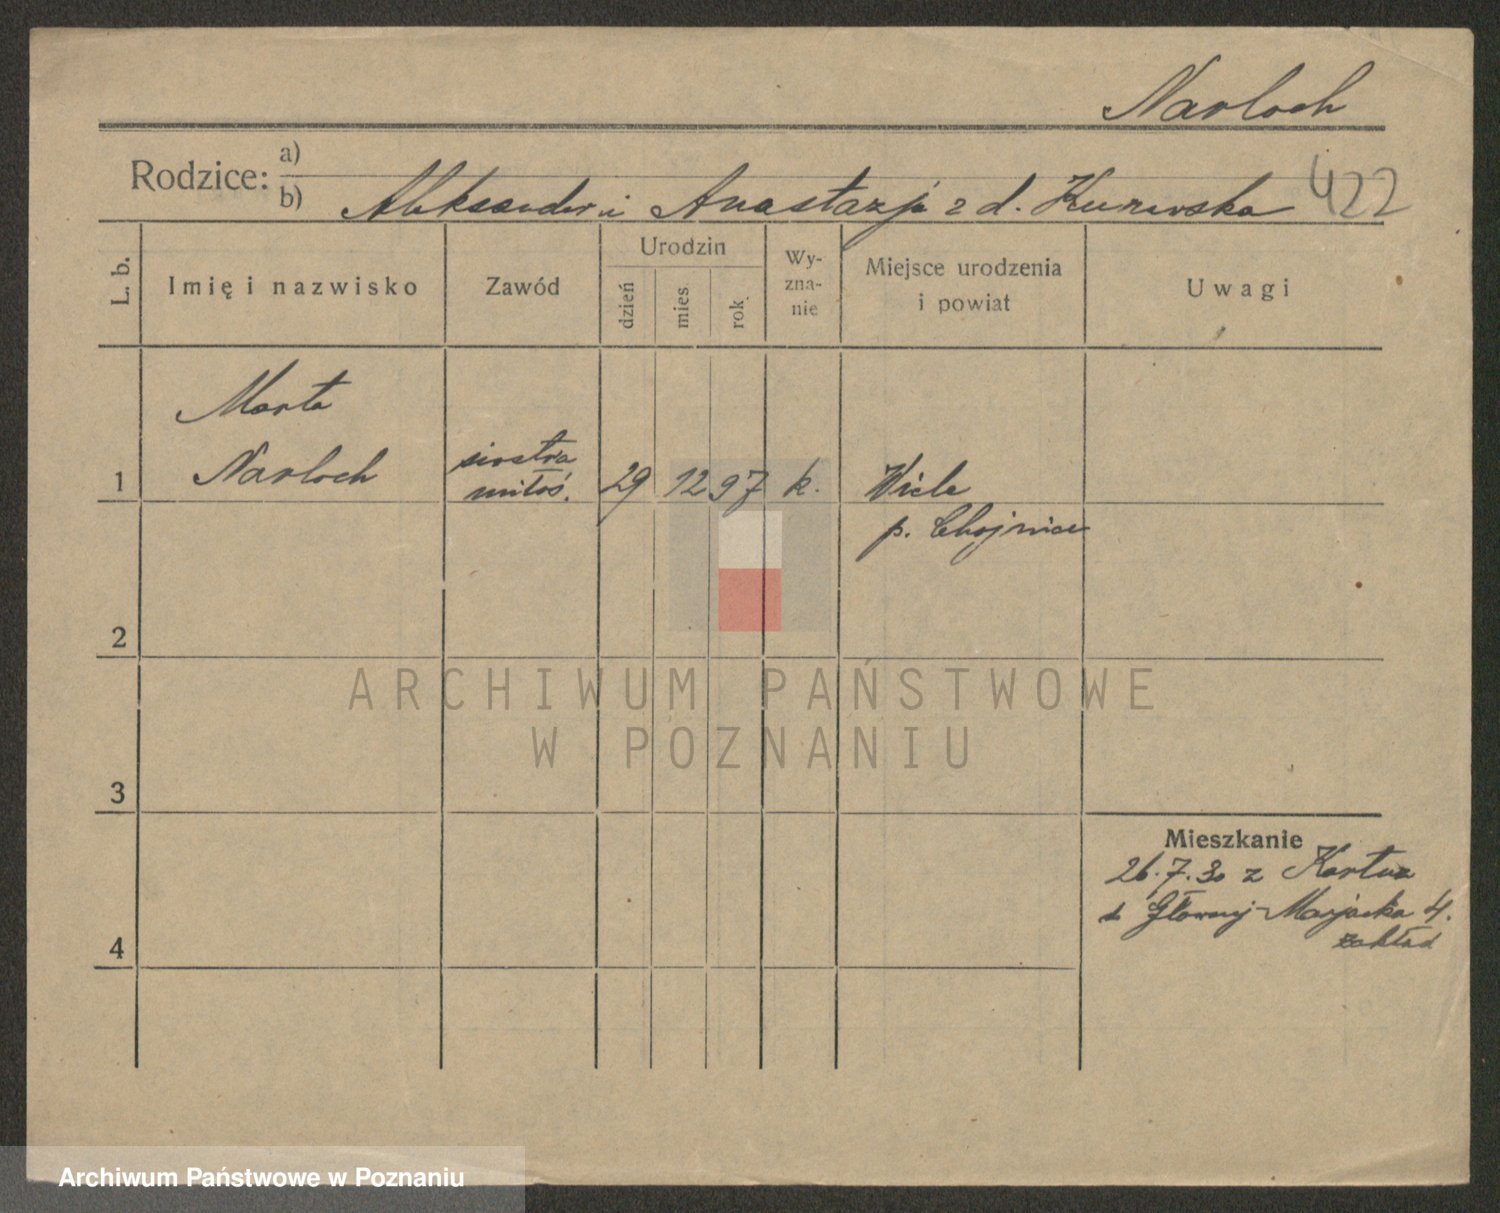 Narloch
Rodzice: a)
b) Aleksander i Anastazja z d. Kurowska
422
L. b.
Imię i nazwisko
Zawód
Urodzin
dzień
mies
rok
Wy-
zna-
nie
Miejsce urodzenia
i powiat
Uwagi
Marta
1 Narloch
siostra
miłoś.
29 12 97 k. Wiele
p. Chojnice
2
3
4
Mieszkanie
26.7.30 z Kartuz
Główny-Marjacka 4.
zakład
ARCHIWUM PAŃSTWOWE
W POZNANIU
Archiwum Państwowe w Poznaniu